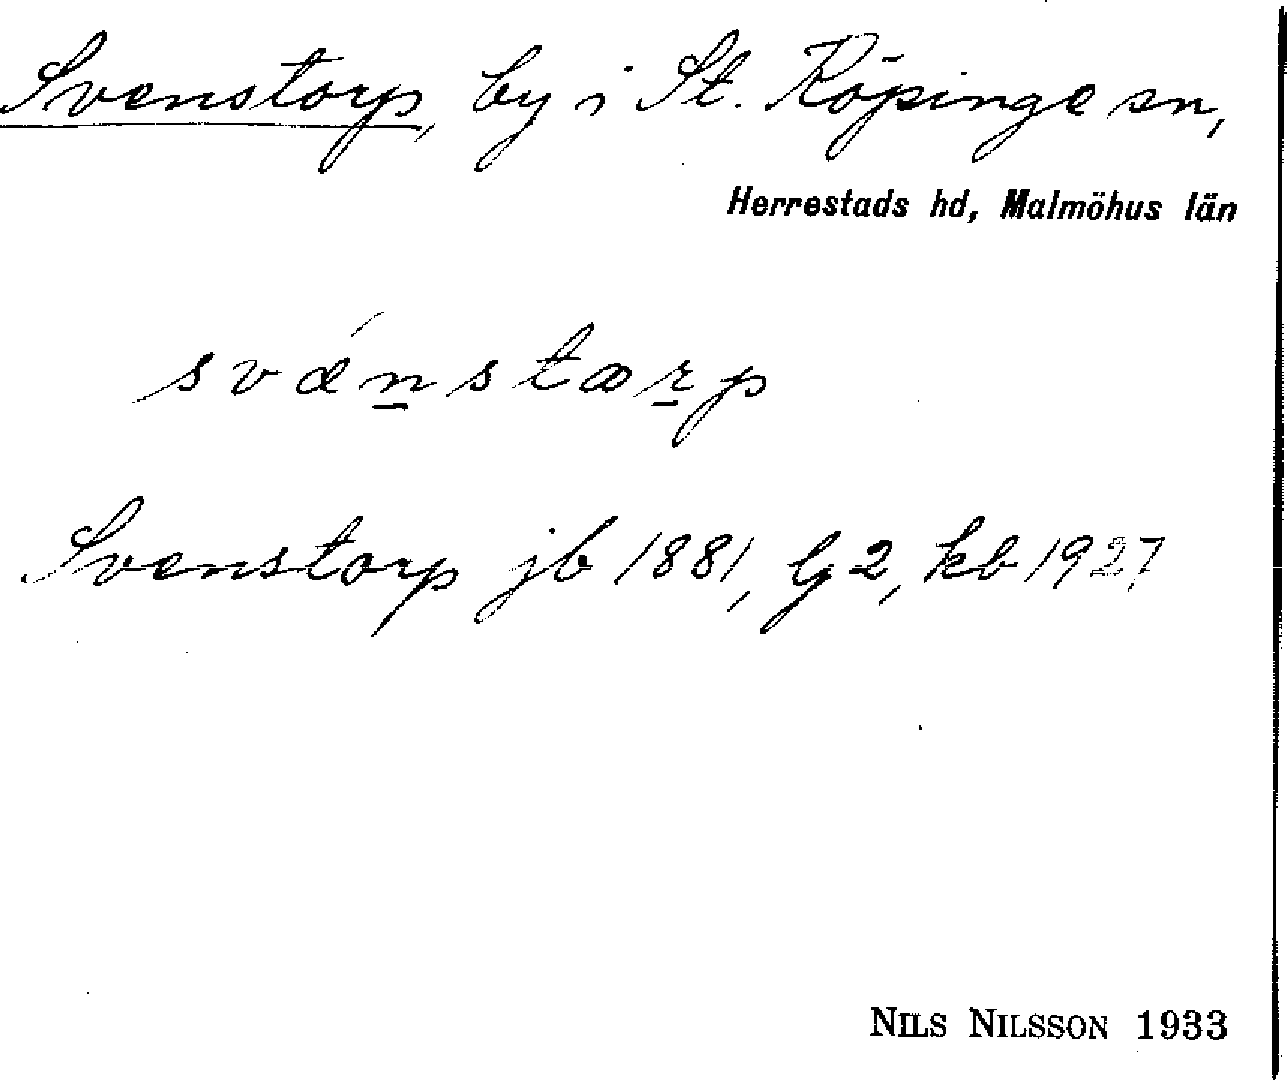 Svenstorp, by i St. Köpinge sn,
Herrestads hd, Malmöhus län
svǽn̲stær̲p
Svenstorp jb 1881, G2, kb 1927
NILS NILSSON 1933